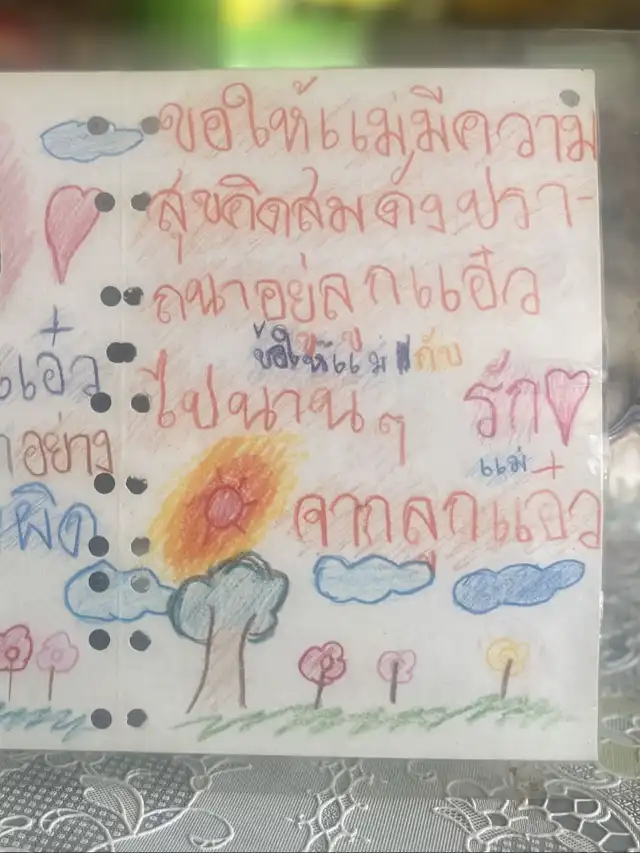 ขอให้แม่มีความ
สุขคิดสมดั่งปรา-
ถนาอยู่ลูกแอ๋ว
ขอให้แม่ กับ
ไปนานๆ
รัก
แม่ +
จากลูกแอ๋ว
+
แอ๋ว
อย่าง
ผิด